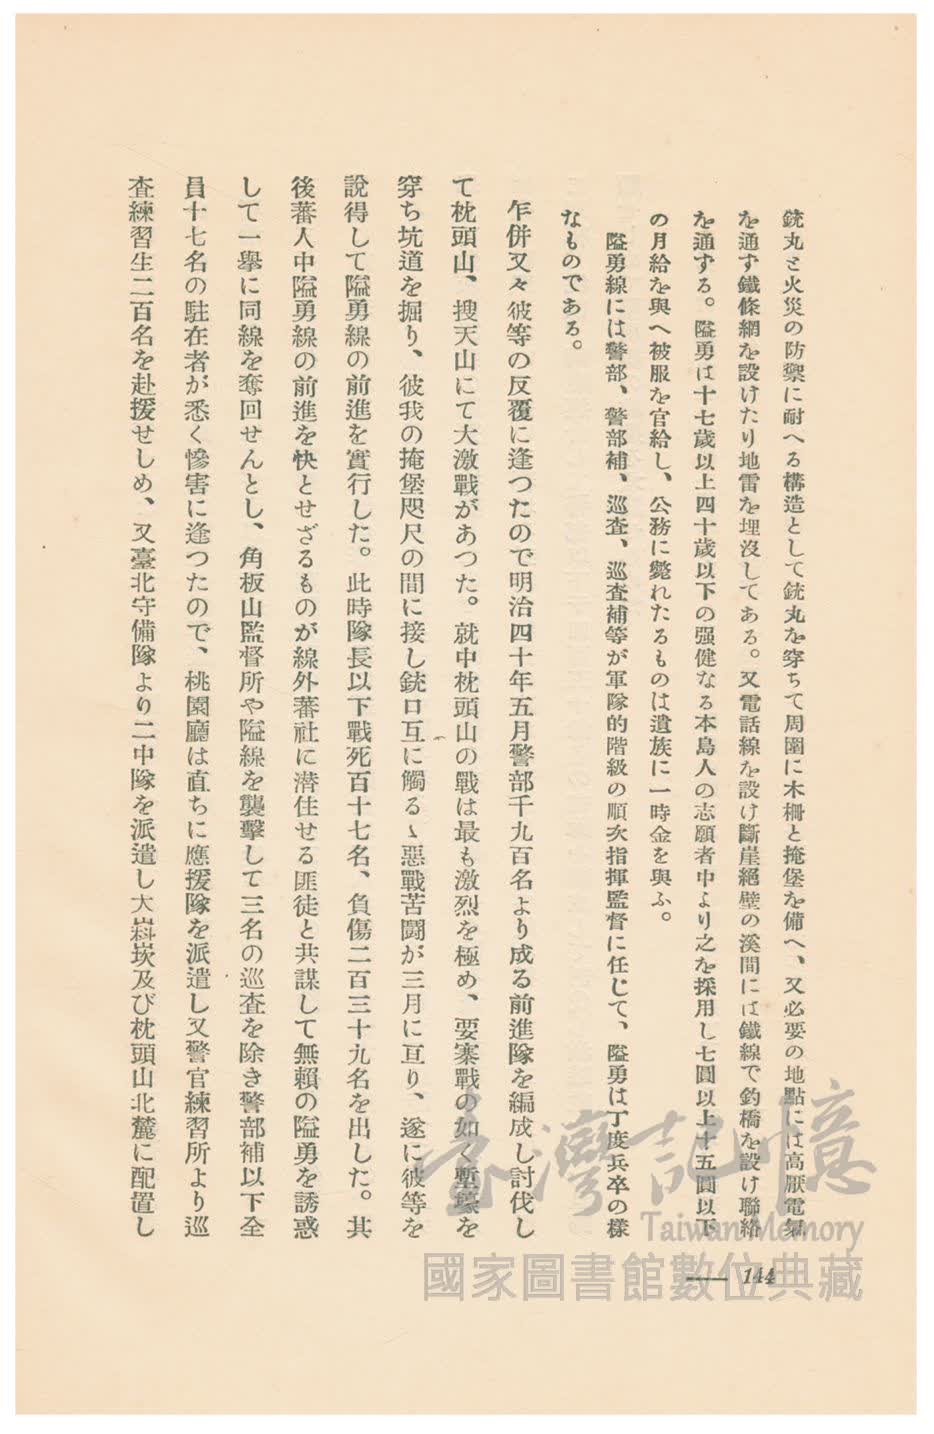 銃丸と火災の防禦に耐へる構造として銃丸を穿ちて周圍に木柵と掩堡を備へ、又必要の地點には高厭電氣
を通ず鐵條網を設けたり地雷を埋沒してある。又電話線を設け斷崖絕壁の溪間には鐵線で釣橋を設け聯絡
を通ずる。隘勇は十七歲以上四十歲以下の强健なる本島人の志願者中より之を採用し七圓以上十五圓以下
の月給を與へ被服を官給し、公務に斃れたるものは遺族に一時金を與ふ。
隘勇線には警部、警部補、巡査、巡査補等が軍隊的階級の順次指揮監督に任じて、隘勇は丁度兵卒の樣
なものである。
乍併又々彼等の反覆に逢つたので明治四十年五月警部千九百名より成る前進隊を編成し討伐し
て枕頭山、搜天山にて大激戰があつた。就中枕頭山の戰は最も激烈を極め、要寨戰の如く塹壕を
穿ち坑道を掘り、彼我の掩堡咫尺の間に接し銃口互に觸るゝ惡戰苦鬪が三月に亘り、遂に彼等を
說得して隘勇線の前進を實行した。此時隊長以下戰死百十七名、負傷二百三十九名を出した。其
後蕃人中隘勇線の前進を快とせざるものが線外蕃社に潜住せる匪徒と共謀して無賴の隘勇を誘惑
して一擧に同線を奪回せんとし、角板山監督所や隘線を襲擊して三名の巡査を除き警部補以下全
員十七名の駐在者が悉く慘害に逢つたので、桃園廳は直ちに應援隊を派遣し又警官練習所より巡
査練習生二百名を赴援せしめ、又臺北守備隊より二中隊を派遣し大嵙崁及び枕頭山北麓に配置し
144
臺灣記憶
Taiwan Memory
國家圖書館數位典藏